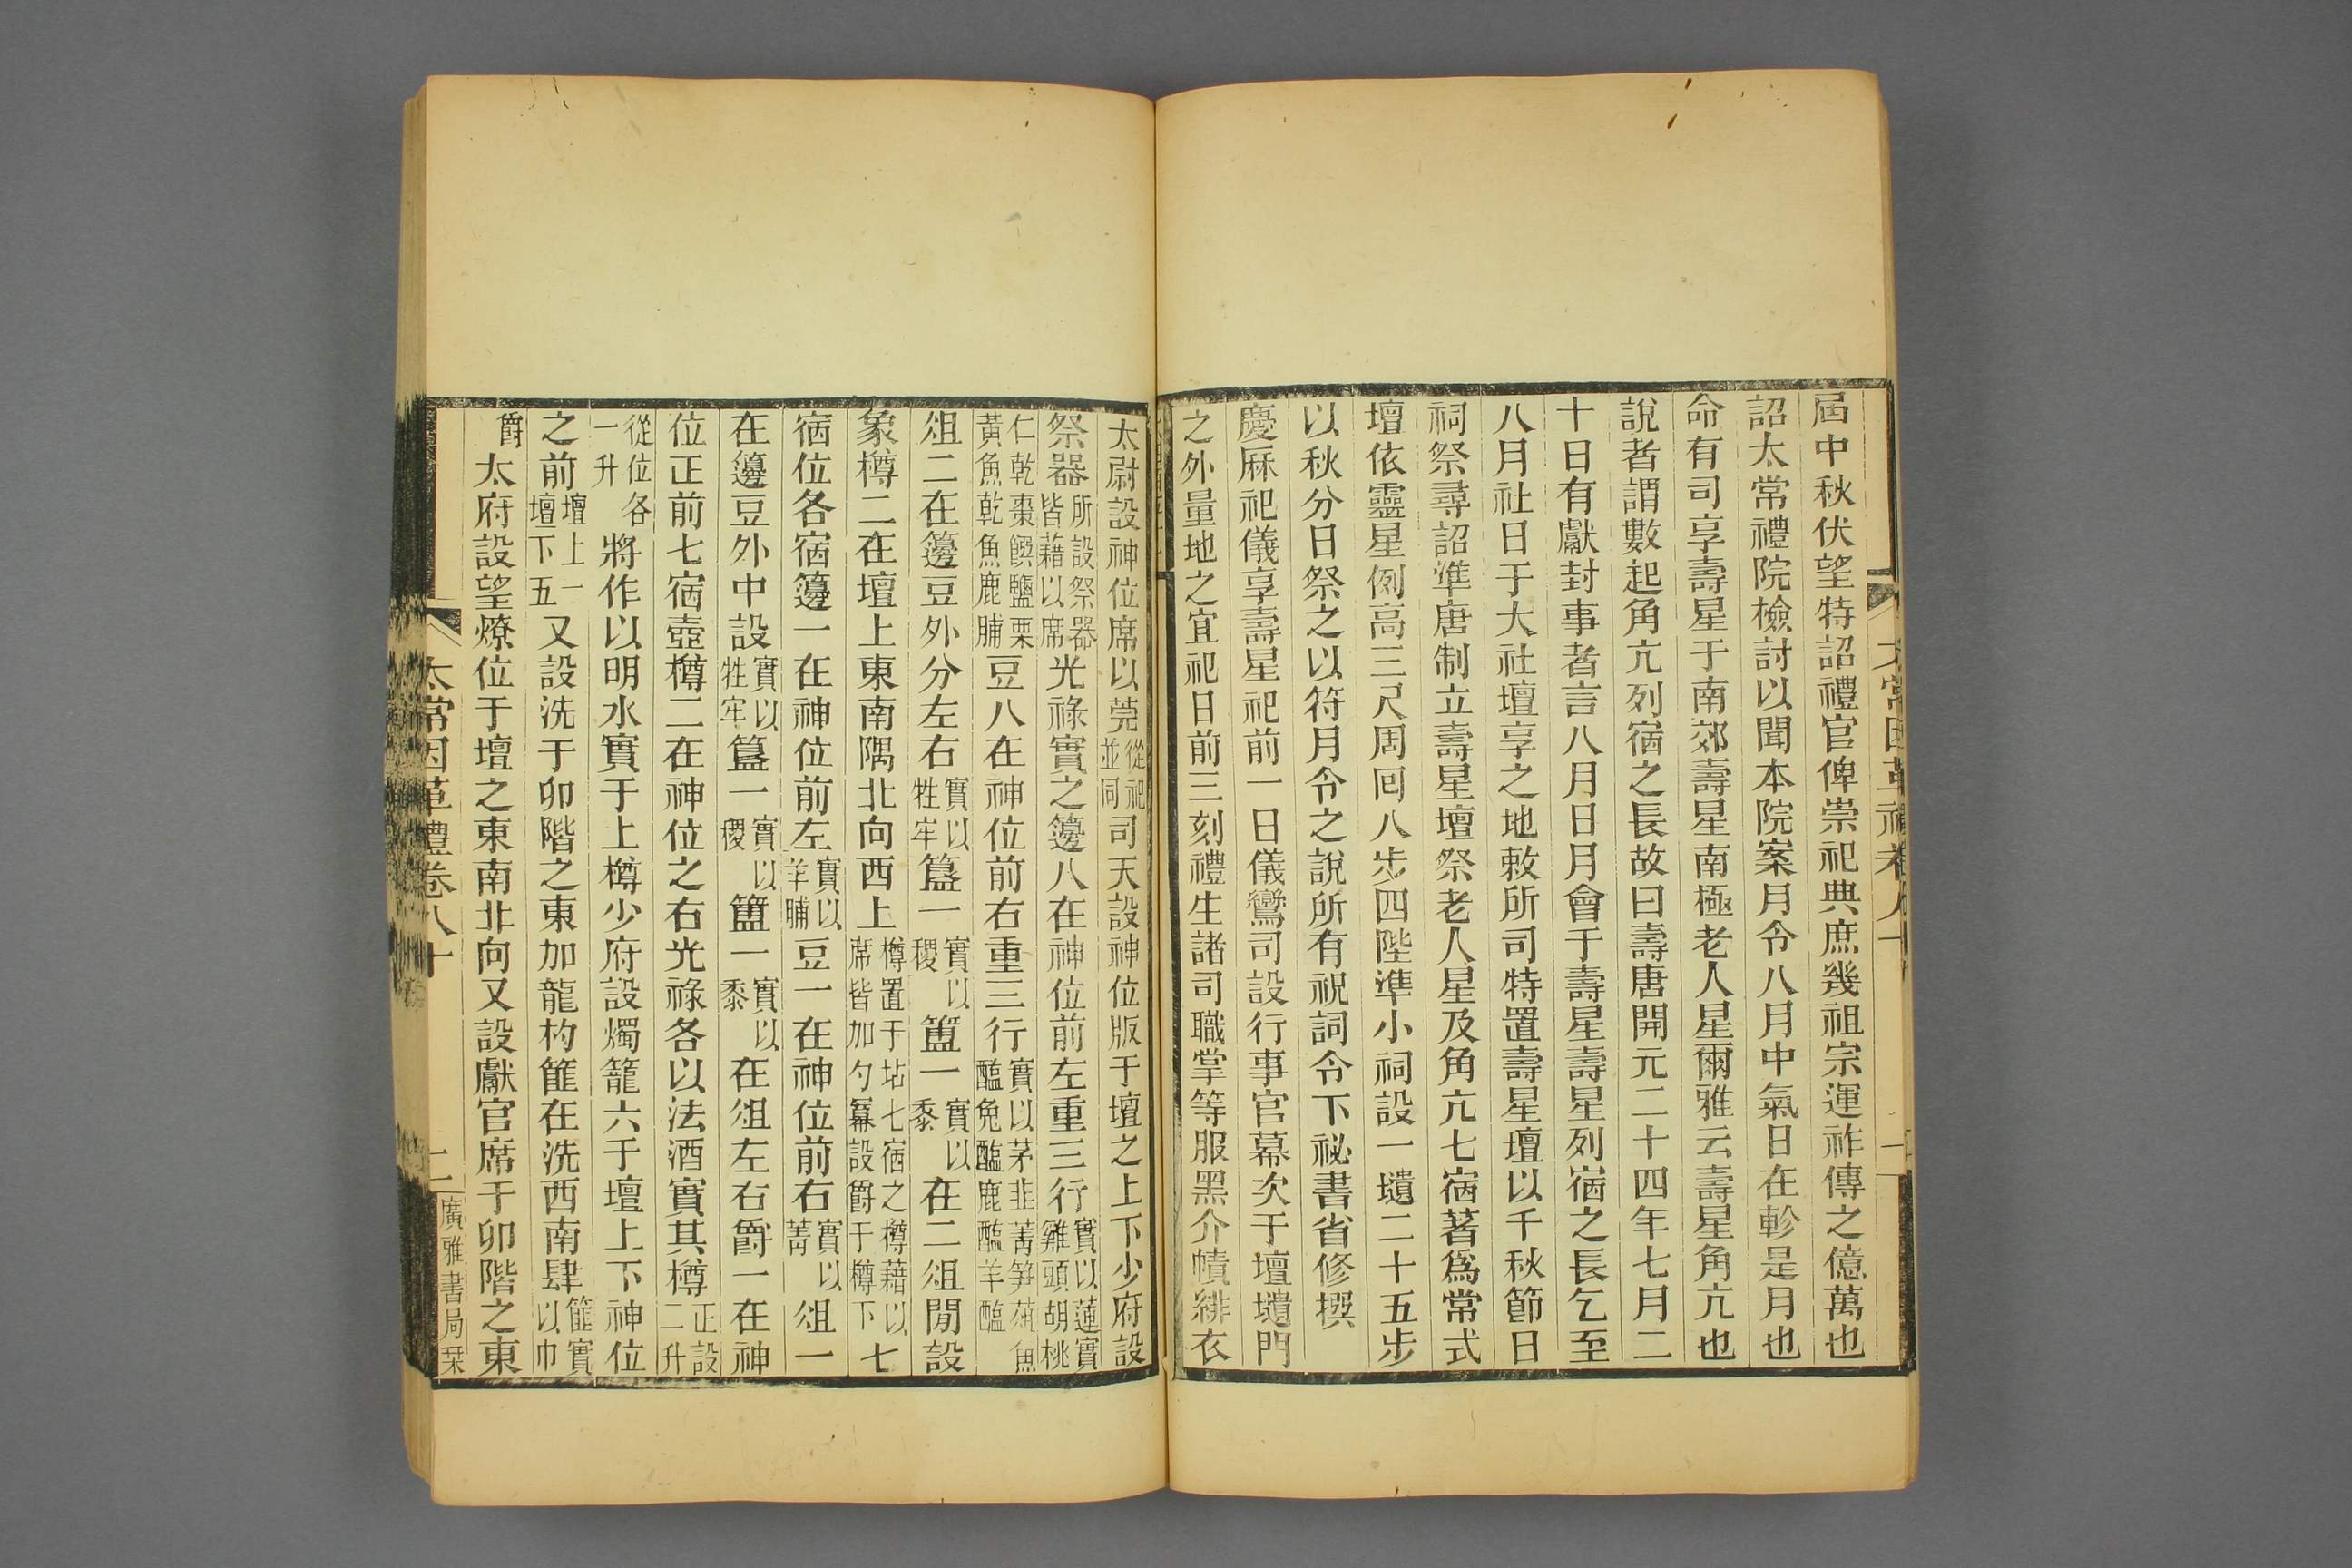 屆中秋伏望特詔禮官俾崇祀典庶幾祖宗運祚傳之億萬也
詔太常禮院檢討以聞本院案月令八月中氣日在軫是月也
命有司享壽星于南郊壽星南極老人星爾雅云壽星角亢也
說者謂數起角亢列宿之長故曰壽唐開元二十四年七月二
十日有獻封事者言八月日月會于壽星壽星列宿之長乞至
八月社日于大社壇享之地敕所司特置壽星壇以千秋節日
祠祭尋詔準唐制立壽星壇祭老人星及角亢七宿著爲常式
壇依靈星例高三尺周囘八步四陛準小祠設一壝二十五步
以秋分日祭之以符月令之說所有祝詞令下祕書省修撰
慶厤祀儀享壽星祀前一日儀鸞司設行事官幕次于壇壝門
之外量地之宜祀日前三刻禮生諸司職掌等服黑介幘緋衣
太尉設神位席以莞從祀並同司天設神位版于壇之上下少府設
祭器所設祭器皆藉以席光祿實之籩八在神位前左重三行實以蓮實雞頭胡桃
仁乾棗餾鹽栗黃魚乾魚鹿脯豆八在神位前右重三行實以茅韭菁笋菰魚醢兔醢鹿醢羊醢
俎二在籩豆外分左右實以牲牢簋一實以稷簠一實以黍在二俎閒設
象樽二在壇上東南隅北向西上樽置于坫七宿之樽藉以席皆加勺冪設爵于樽下七
宿位各宿籩一在神位前左實以羊脯豆一在神位前右實以菁俎一
在籩豆外中設實以牲牢簋一實以稷簠一實以黍在俎左右爵一在神
位正前七宿壺樽二在神位之右光祿各以法酒實其樽正設二升
從位各一升將作以明水實于上樽少府設燭籠六于壇上下神位
之前壇上一壇下五又設洗于卯階之東加龍杓篚在洗西南肆篚實以巾
爵太府設望燎位于壇之東南北向又設獻官席于卯階之東
太常因革禮卷八十
二
廣雅書局栞